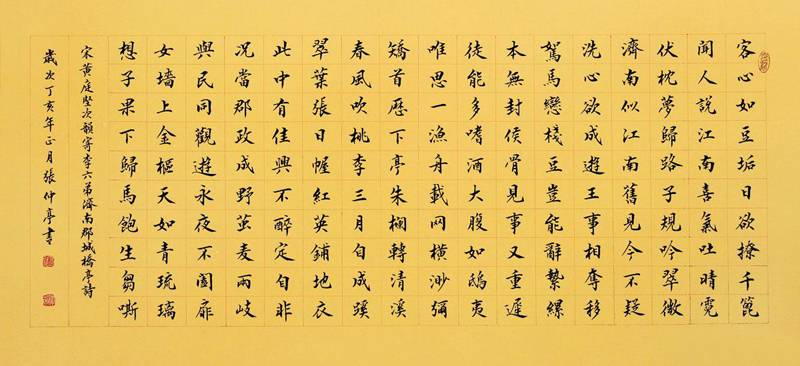 客心如豆垢日欲撩千篦
聞人説江南喜氣吐晴霓
伏枕夢歸路子規吟翠微
濟南似江南舊見今不疑
洗心欲成遊王事相奪移
駑馬戀棧豆豈能辭縶縲
本無封侯骨見事又重遲
徒能多嗜酒大腹如鴟夷
唯思一漁舟載网橫渺瀰
矯首歷下亭朱欄轉清溪
春風吹桃李三月自成蹊
翠葉張日幄紅英鋪地衣
此中有佳興不醉定自非
況當郡政成野茧麦兩岐
與民同觀遊永夜不闔扉
女墻上金樞天如青琉璃
想子果下歸馬飽生芻嘶
宋黃庭堅次韻寄李六弟濟南郡城橋亭詩
歲次丁亥年正月張仲亭書